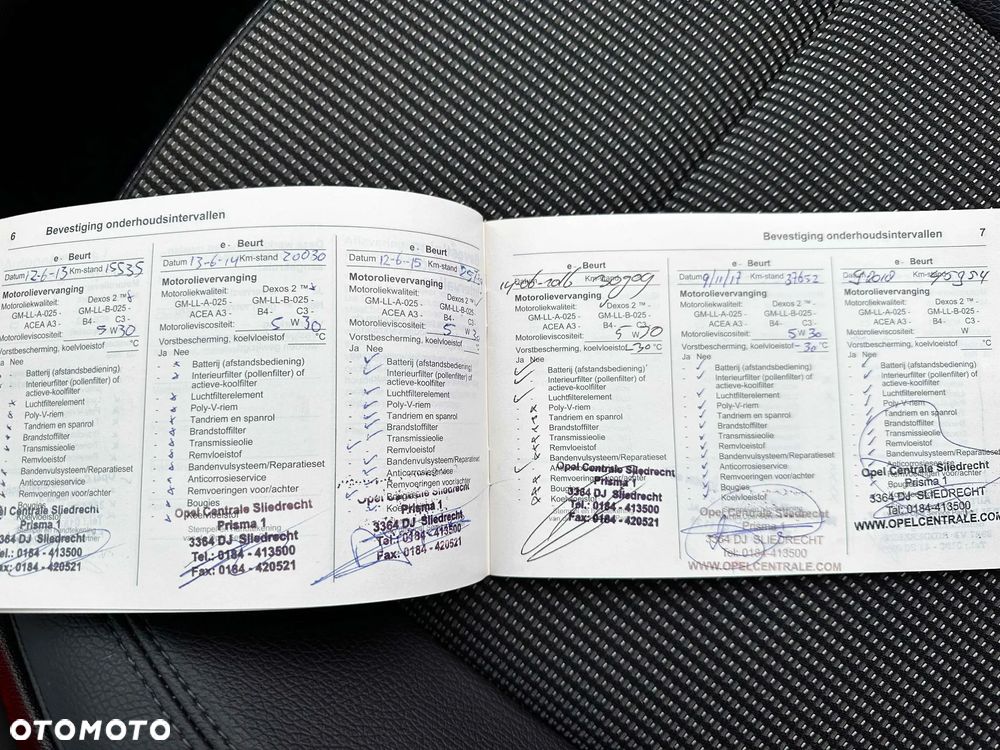 6 Bevestiging onderhoudsintervallen
e- Beurt
Datum 12-6-13 Km-stand 15535
Motorolievervanging
Motoroliekwaliteit: Dexos 2 ™ -
GM-LL-A-025 - GM-LL-B-025 -
ACEA A3 - B4- C3 -
Motorolieviscositeit: 5 W 30
Vorstbescherming, koelvloeistof °C
Ja Nee
Batterij (afstandsbediening)
Interieurfilter (pollenfilter) of
actieve-koolfilter
Luchtfilterelement
Poly-V-riem
Tandriem en spanrol
Brandstoffilter
Transmissieolie
Remvloeistof
Bandenvulsysteem/Reparatieset
Anticorrosieservice
Remvoeringen voor/achter
Bougies
Koelvloeistof
Opel Centrale Sliedrecht
Prisma 1
3364 DJ Sliedrecht
Tel.: 0184 - 413500
Fax: 0184 - 420521
e- Beurt
Datum 13-6-14 Km-stand 20030
Motorolievervanging
Motoroliekwaliteit: Dexos 2 ™ -
GM-LL-A-025 - GM-LL-B-025 -
ACEA A3 - B4- C3 -
Motorolieviscositeit: 5 W 30
Vorstbescherming, koelvloeistof °C
Ja Nee
Batterij (afstandsbediening)
Interieurfilter (pollenfilter) of
actieve-koolfilter
Luchtfilterelement
Poly-V-riem
Tandriem en spanrol
Brandstoffilter
Transmissieolie
Remvloeistof
Bandenvulsysteem/Reparatieset
Anticorrosieservice
Remvoeringen voor/achter
Bougies
Opel Centrale Sliedrecht
Prisma 1
3364 DJ Sliedrecht
Tel.: 0184 - 413500
Fax: 0184 - 420521
e- Beurt
Datum 12-6-15 Km-stand
Motorolievervanging
Motoroliekwaliteit: Dexos 2 ™ -
GM-LL-A-025 - GM-LL-B-025 -
ACEA A3 - B4- C3 -
Motorolieviscositeit: 5 W 30
Vorstbescherming, koelvloeistof °C
Ja Nee
Batterij (afstandsbediening)
Interieurfilter (pollenfilter) of
actieve-koolfilter
Luchtfilterelement
Poly-V-riem
Tandriem en spanrol
Brandstoffilter
Transmissieolie
Remvloeistof
Bandenvulsysteem/Reparatieset
Anticorrosieservice
Remvoeringen voor/achter
Bougies
Opel Centrale Sliedrecht
Prisma 1
3364 DJ Sliedrecht
Tel.: 0184 - 413500
Fax: 0184 - 420521
Bevestiging onderhoudsintervallen 7
e- Beurt
Motorolievervanging
Motoroliekwaliteit: Dexos 2 ™ -
GM-LL-A-025 - GM-LL-B-025 -
ACEA A3 - B4- C3 -
Motorolieviscositeit: 5 W 30
Vorstbescherming, koelvloeistof -30 °C
Ja Nee
Batterij (afstandsbediening)
Interieurfilter (pollenfilter) of
actieve-koolfilter
Luchtfilterelement
Poly-V-riem
Tandriem en spanrol
Brandstoffilter
Transmissieolie
Remvloeistof
Bandenvulsysteem/Reparatieset
Anticorrosieservice
Remvoeringen voor/achter
Bougies
Koelvloeistof
Opel Centrale Sliedrecht
Prisma 1
3364 DJ Sliedrecht
Tel.: 0184 - 413500
Fax: 0184 - 420521
e- Beurt
Datum 9/11/17 Km-stand 37652
Motorolievervanging
Motoroliekwaliteit: Dexos 2 ™ -
GM-LL-A-025 - GM-LL-B-025 -
ACEA A3 - B4- C3 -
Motorolieviscositeit: 5 W 30
Vorstbescherming, koelvloeistof -30 °C
Ja Nee
Batterij (afstandsbediening)
Interieurfilter (pollenfilter) of
actieve-koolfilter
Luchtfilterelement
Poly-V-riem
Tandriem en spanrol
Brandstoffilter
Transmissieolie
Remvloeistof
Bandenvulsysteem/Reparatieset
Anticorrosieservice
Remvoeringen voor/achter
Bougies
Koelvloeistof
Opel Centrale Sliedrecht
Prisma 1
3364 DJ SLIEDRECHT
Tel: 0184-413500
WWW.OPELCENTRALE.COM
e- Beurt
Motorolievervanging
Motoroliekwaliteit: Dexos 2 ™ -
GM-LL-A-025 - GM-LL-B-025 -
ACEA A3 - B4- C3 -
Motorolieviscositeit: W
Vorstbescherming, koelvloeistof °C
Ja Nee
Batterij (afstandsbediening)
Interieurfilter (pollenfilter) of
actieve-koolfilter
Luchtfilterelement
Poly-V-riem
Tandriem en spanrol
Brandstoffilter
Transmissieolie
Remvloeistof
Bandenvulsysteem/Reparatieset
Opel Centrale Sliedrecht
Prisma 1
3364 DJ SLIEDRECHT
Tel: 0184-413500
WWW.OPELCENTRALE.COM
OTOMOTO